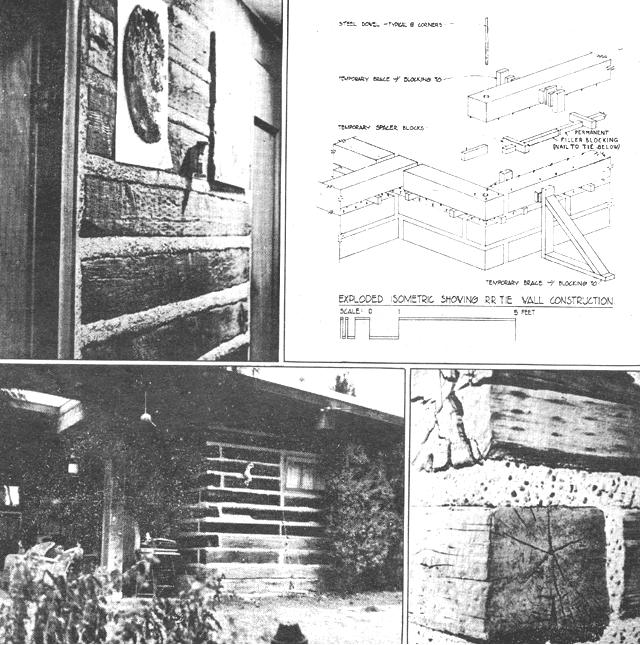 STEEL DOWEL - TYPICAL @ CORNERS
TEMPORARY BRACE W/ BLOCKING TO
TEMPORARY SPACER BLOCKS
PERMANENT
FILLER BLOCKING
(NAIL TO TIE BELOW)
TEMPORARY BRACE W/ BLOCKING TO
EXPLODED ISOMETRIC SHOWING R.R. TIE WALL CONSTRUCTION
SCALE: 0 1 5 FEET